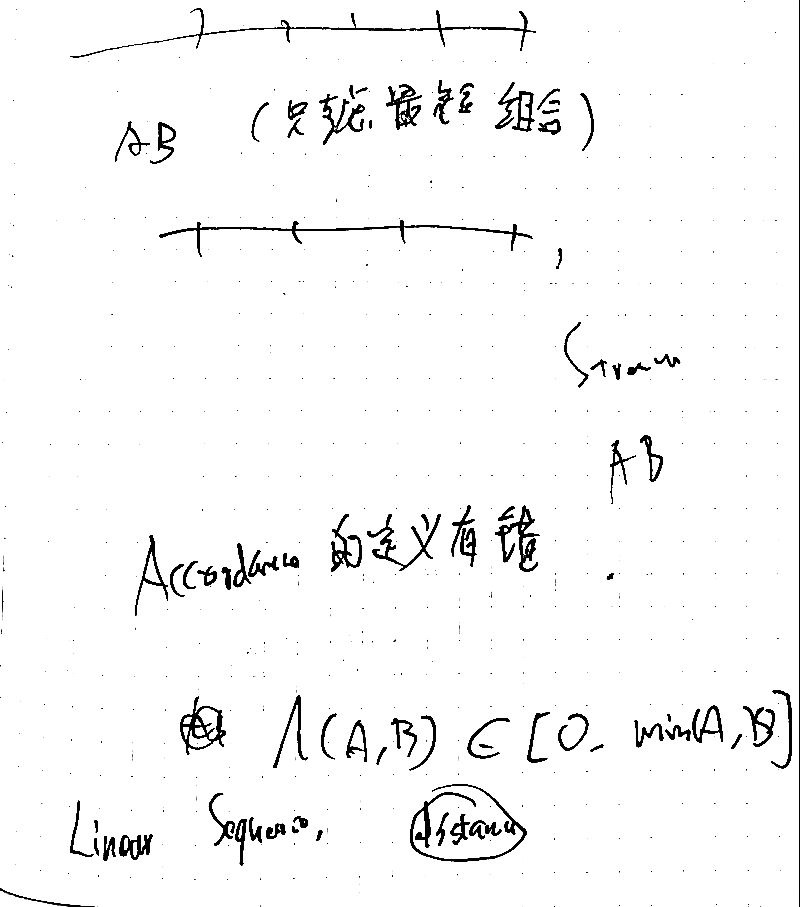 AB （只考虑最短组合）
Stream
AB
Accordance 的定义有错
Λ(A,B) ∈ [0, min(A,B)]
Linear Sequence, distance